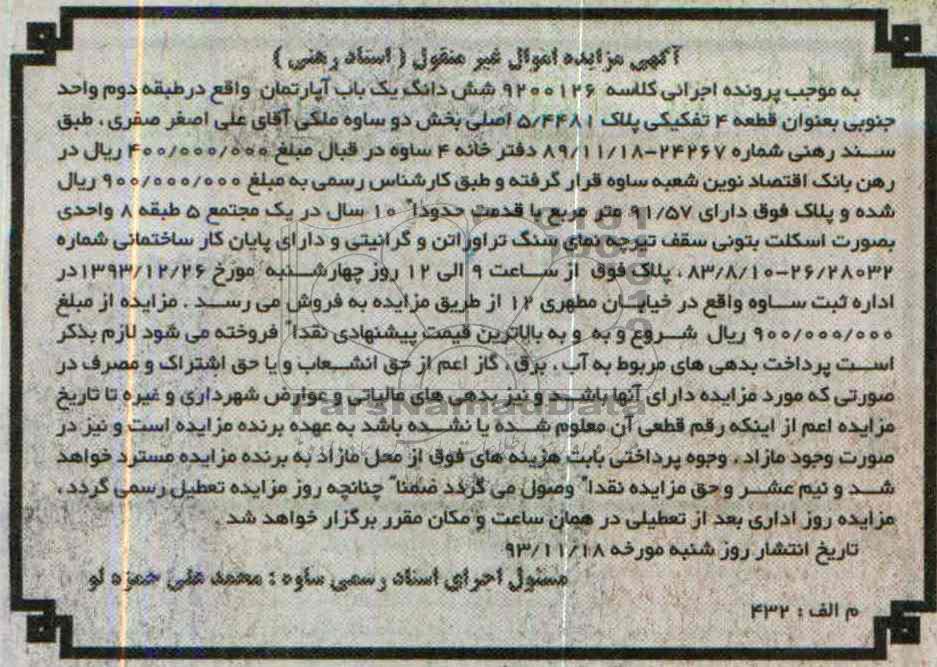 آگهی مزایده اموال غیر منقول ( اسناد رهنی )
به موجب پرونده اجرائی کلاسه ۹۲۰۰۱۲۶ شش دانگ یک باب آپارتمان واقع درطبقه دوم واحد
جنوبی بعنوان قطعه ۴ تفکیکی پلاک ۵/۴۴۸۱ اصلی بخش دو ساوه ملکی آقای علی اصغر صفری ، طبق
سند رهنی شماره ۲۴۲۶۷-۸۹/۱۱/۱۸ دفتر خانه ۴ ساوه در قبال مبلغ ۴۰۰/۰۰۰/۰۰۰ ریال در
رهن بانک اقتصاد نوین شعبه ساوه قرار گرفته و طبق کارشناس رسمی به مبلغ ۹۰۰/۰۰۰/۰۰۰ ریال
شده و پلاک فوق دارای ۹۱/۵۷ متر مربع با قدمت حدوداً ۱۰ سال در یک مجتمع ۵ طبقه ۸ واحدی
بصورت اسکلت بتونی سقف تیرچه نمای سنگ تراوراتن و گرانیتی و دارای پایان کار ساختمانی شماره
۲۶/۲۸۰۳۲-۸۳/۸/۱۰ ، پلاک فوق از ساعت ۹ الی ۱۲ روز چهارشنبه مورخ ۱۳۹۳/۱۲/۲۶در
اداره ثبت ساوه واقع در خیابان مطهری ۱۲ از طریق مزایده به فروش می رسد . مزایده از مبلغ
۹۰۰/۰۰۰/۰۰۰ ریال شروع و به و به بالاترین قیمت پیشنهادی نقداً فروخته می شود لازم بذکر
است پرداخت بدهی های مربوط به آب ، برق ، گاز اعم از حق انشعاب و یا حق اشتراک و مصرف در
صورتی که مورد مزایده دارای آنها باشد و نیز بدهی های مالیاتی و عوارض شهرداری و غیره تا تاریخ
مزایده اعم از اینکه رقم قطعی آن معلوم شده یا نشده باشد به عهده برنده مزایده است و نیز در
صورت وجود مازاد ، وجوه پرداختی بابت هزینه های فوق از محل مازاد به برنده مزایده مسترد خواهد
شد و نیم عشر و حق مزایده نقداً وصول می گردد ضمناً چنانچه روز مزایده تعطیل رسمی گردد ،
مزایده روز اداری بعد از تعطیلی در همان ساعت و مکان مقرر برگزار خواهد شد .
تاریخ انتشار روز شنبه مورخه ۹۳/۱۱/۱۸
مسئول اجرای اسناد رسمی ساوه : محمد علی حمزه لو
م الف : ۴۳۲
ParsNamadData